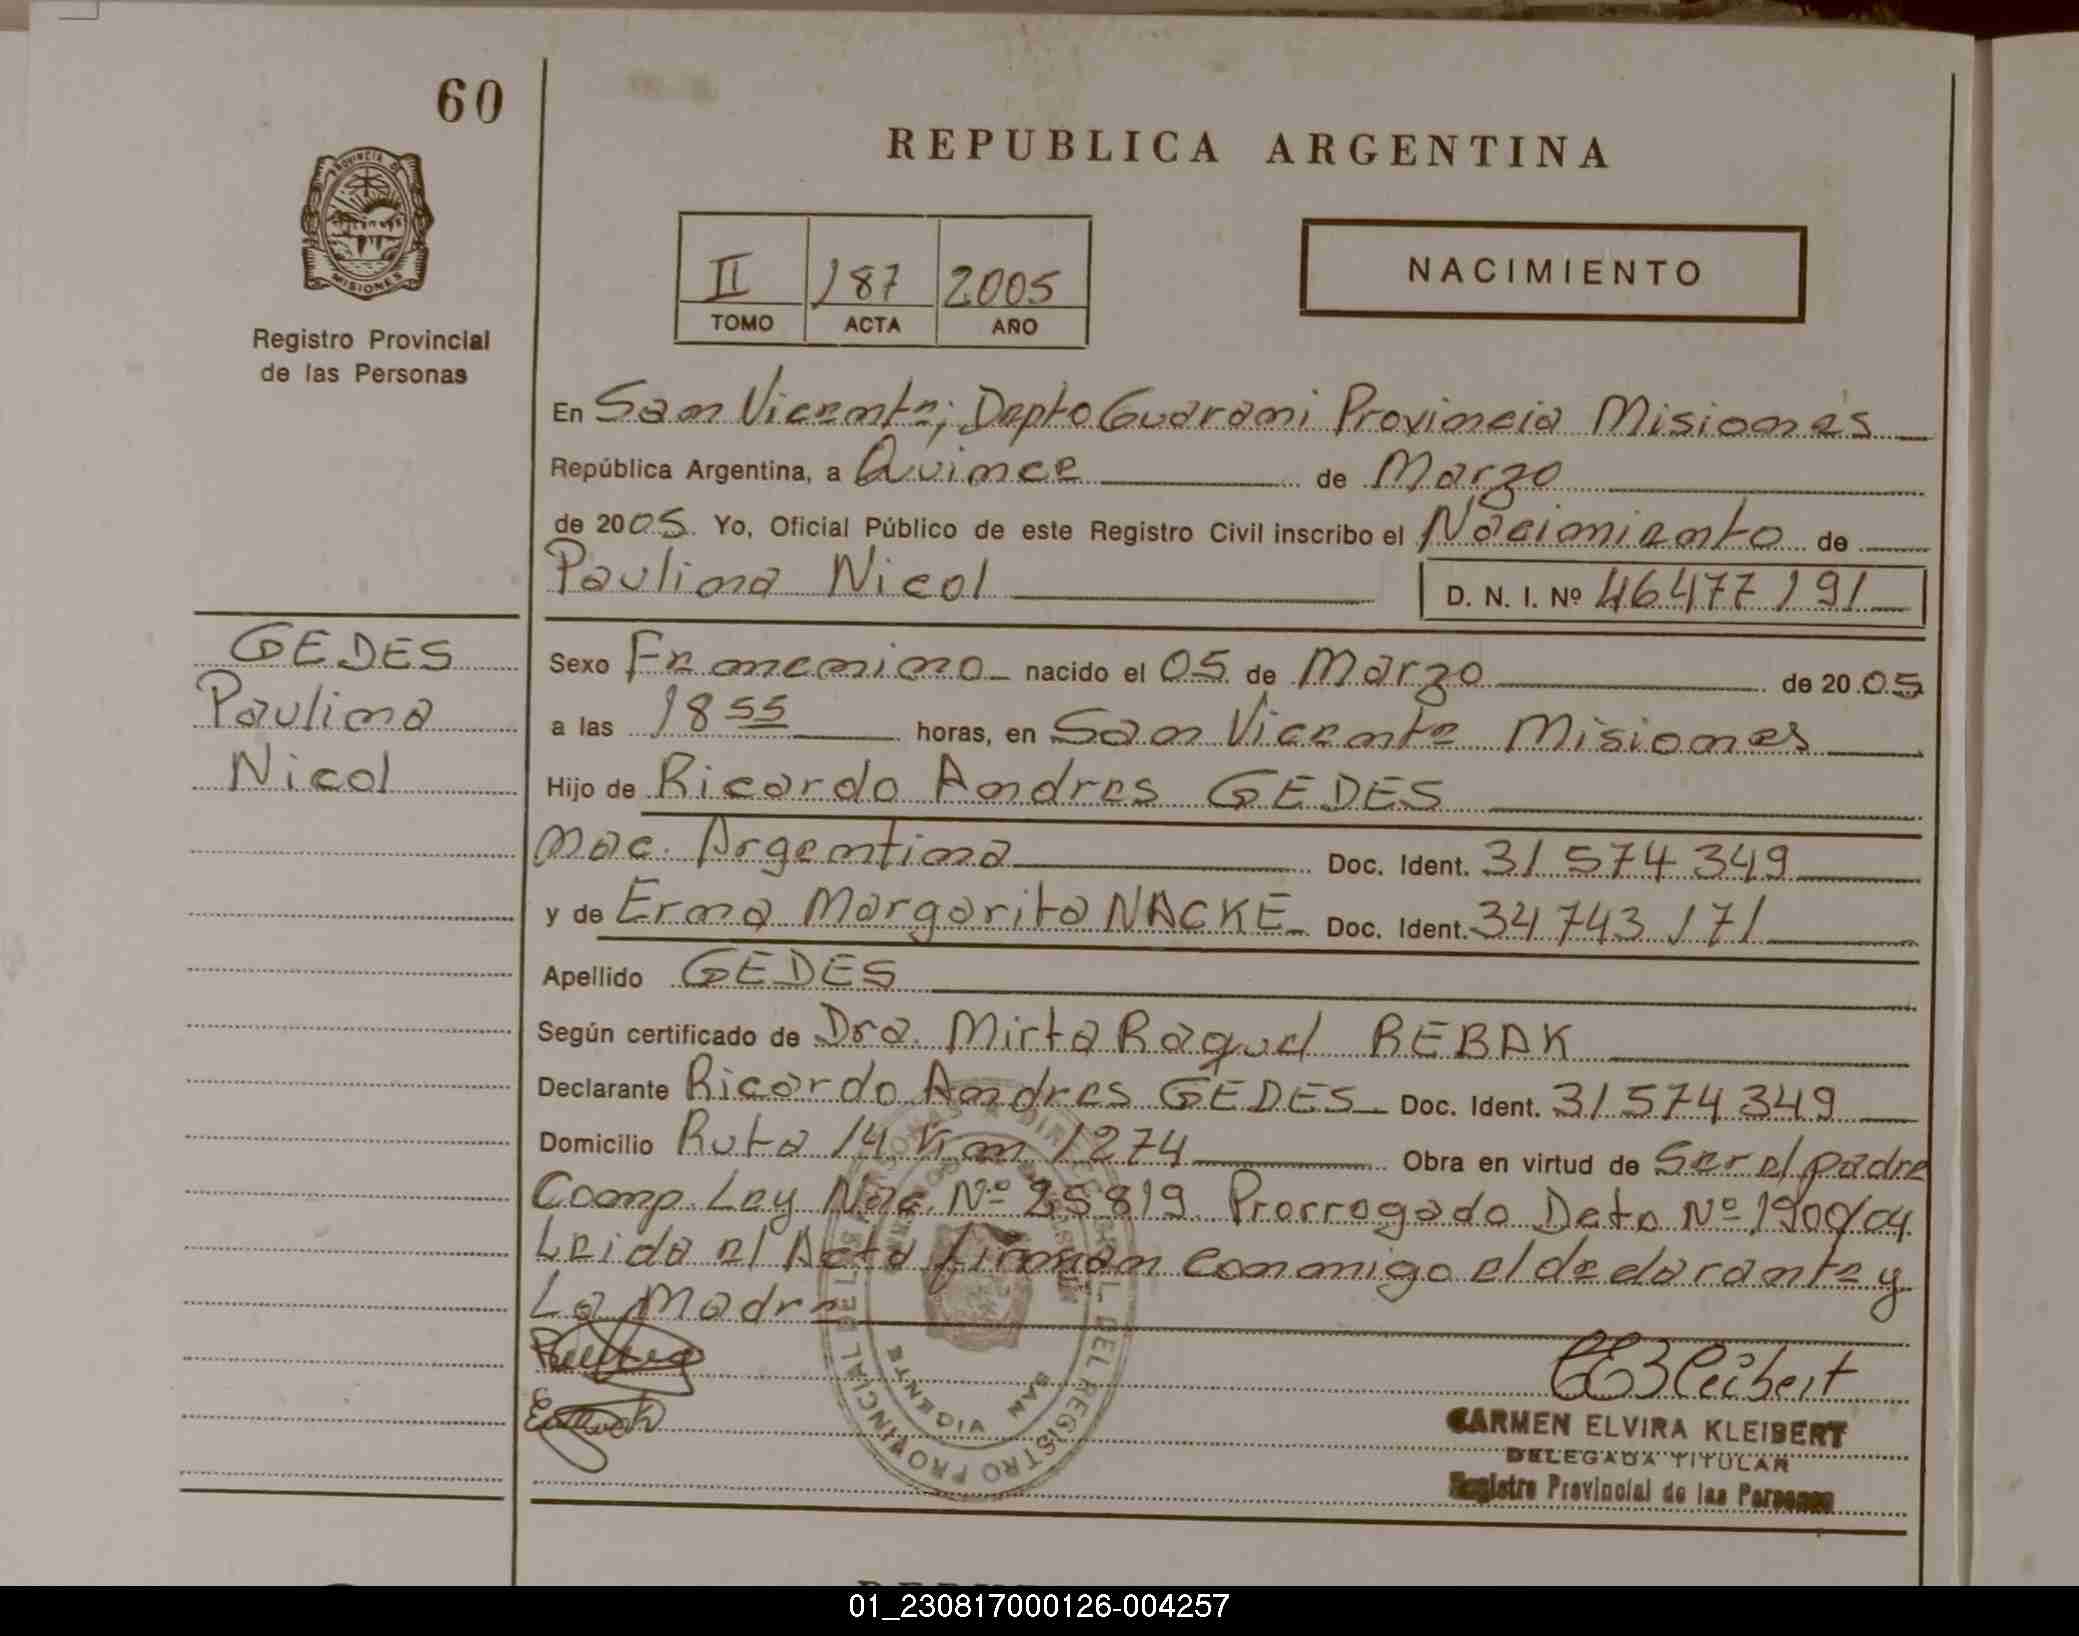 60
REPUBLICA ARGENTINA
PROVINCIA DE
MISIONES
Registro Provincial
de las Personas
II 187 2005
TOMO ACTA AÑO
NACIMIENTO
En San Vicente; Depto Guarani Provincia Misiones
República Argentina, a Quince de Marzo
de 2005. Yo, Oficial Público de este Registro Civil inscribo el Nacimiento de
Paulina Nicol D. N. I. Nº 46477191
GEDES
Paulina
Nicol
Sexo Femenino nacido el 05 de Marzo de 2005
a las 18 55 horas, en San Vicente Misiones
Hijo de Ricardo Andres GEDES
nac. Argentina Doc. Ident. 31 574 349
y de Erma Margarita NACKE Doc. Ident. 34 743 171
Apellido GEDES
Según certificado de Dra. Mirta Raquel REBAK
Declarante Ricardo Andres GEDES Doc. Ident. 31 574 349
Domicilio Ruta 14 Km 1274 Obra en virtud de Ser el padre
Comp. Ley Nac. Nº 25819 Prorrogado Dcto Nº 1900/04.
Leida el Acta firman conmigo el declarante y
La Madre
SAN VICENTE
CARMEN ELVIRA KLEIBERT
DELEGADA TITULAR
Registro Provincial de las Personas
01_230817000126-004257